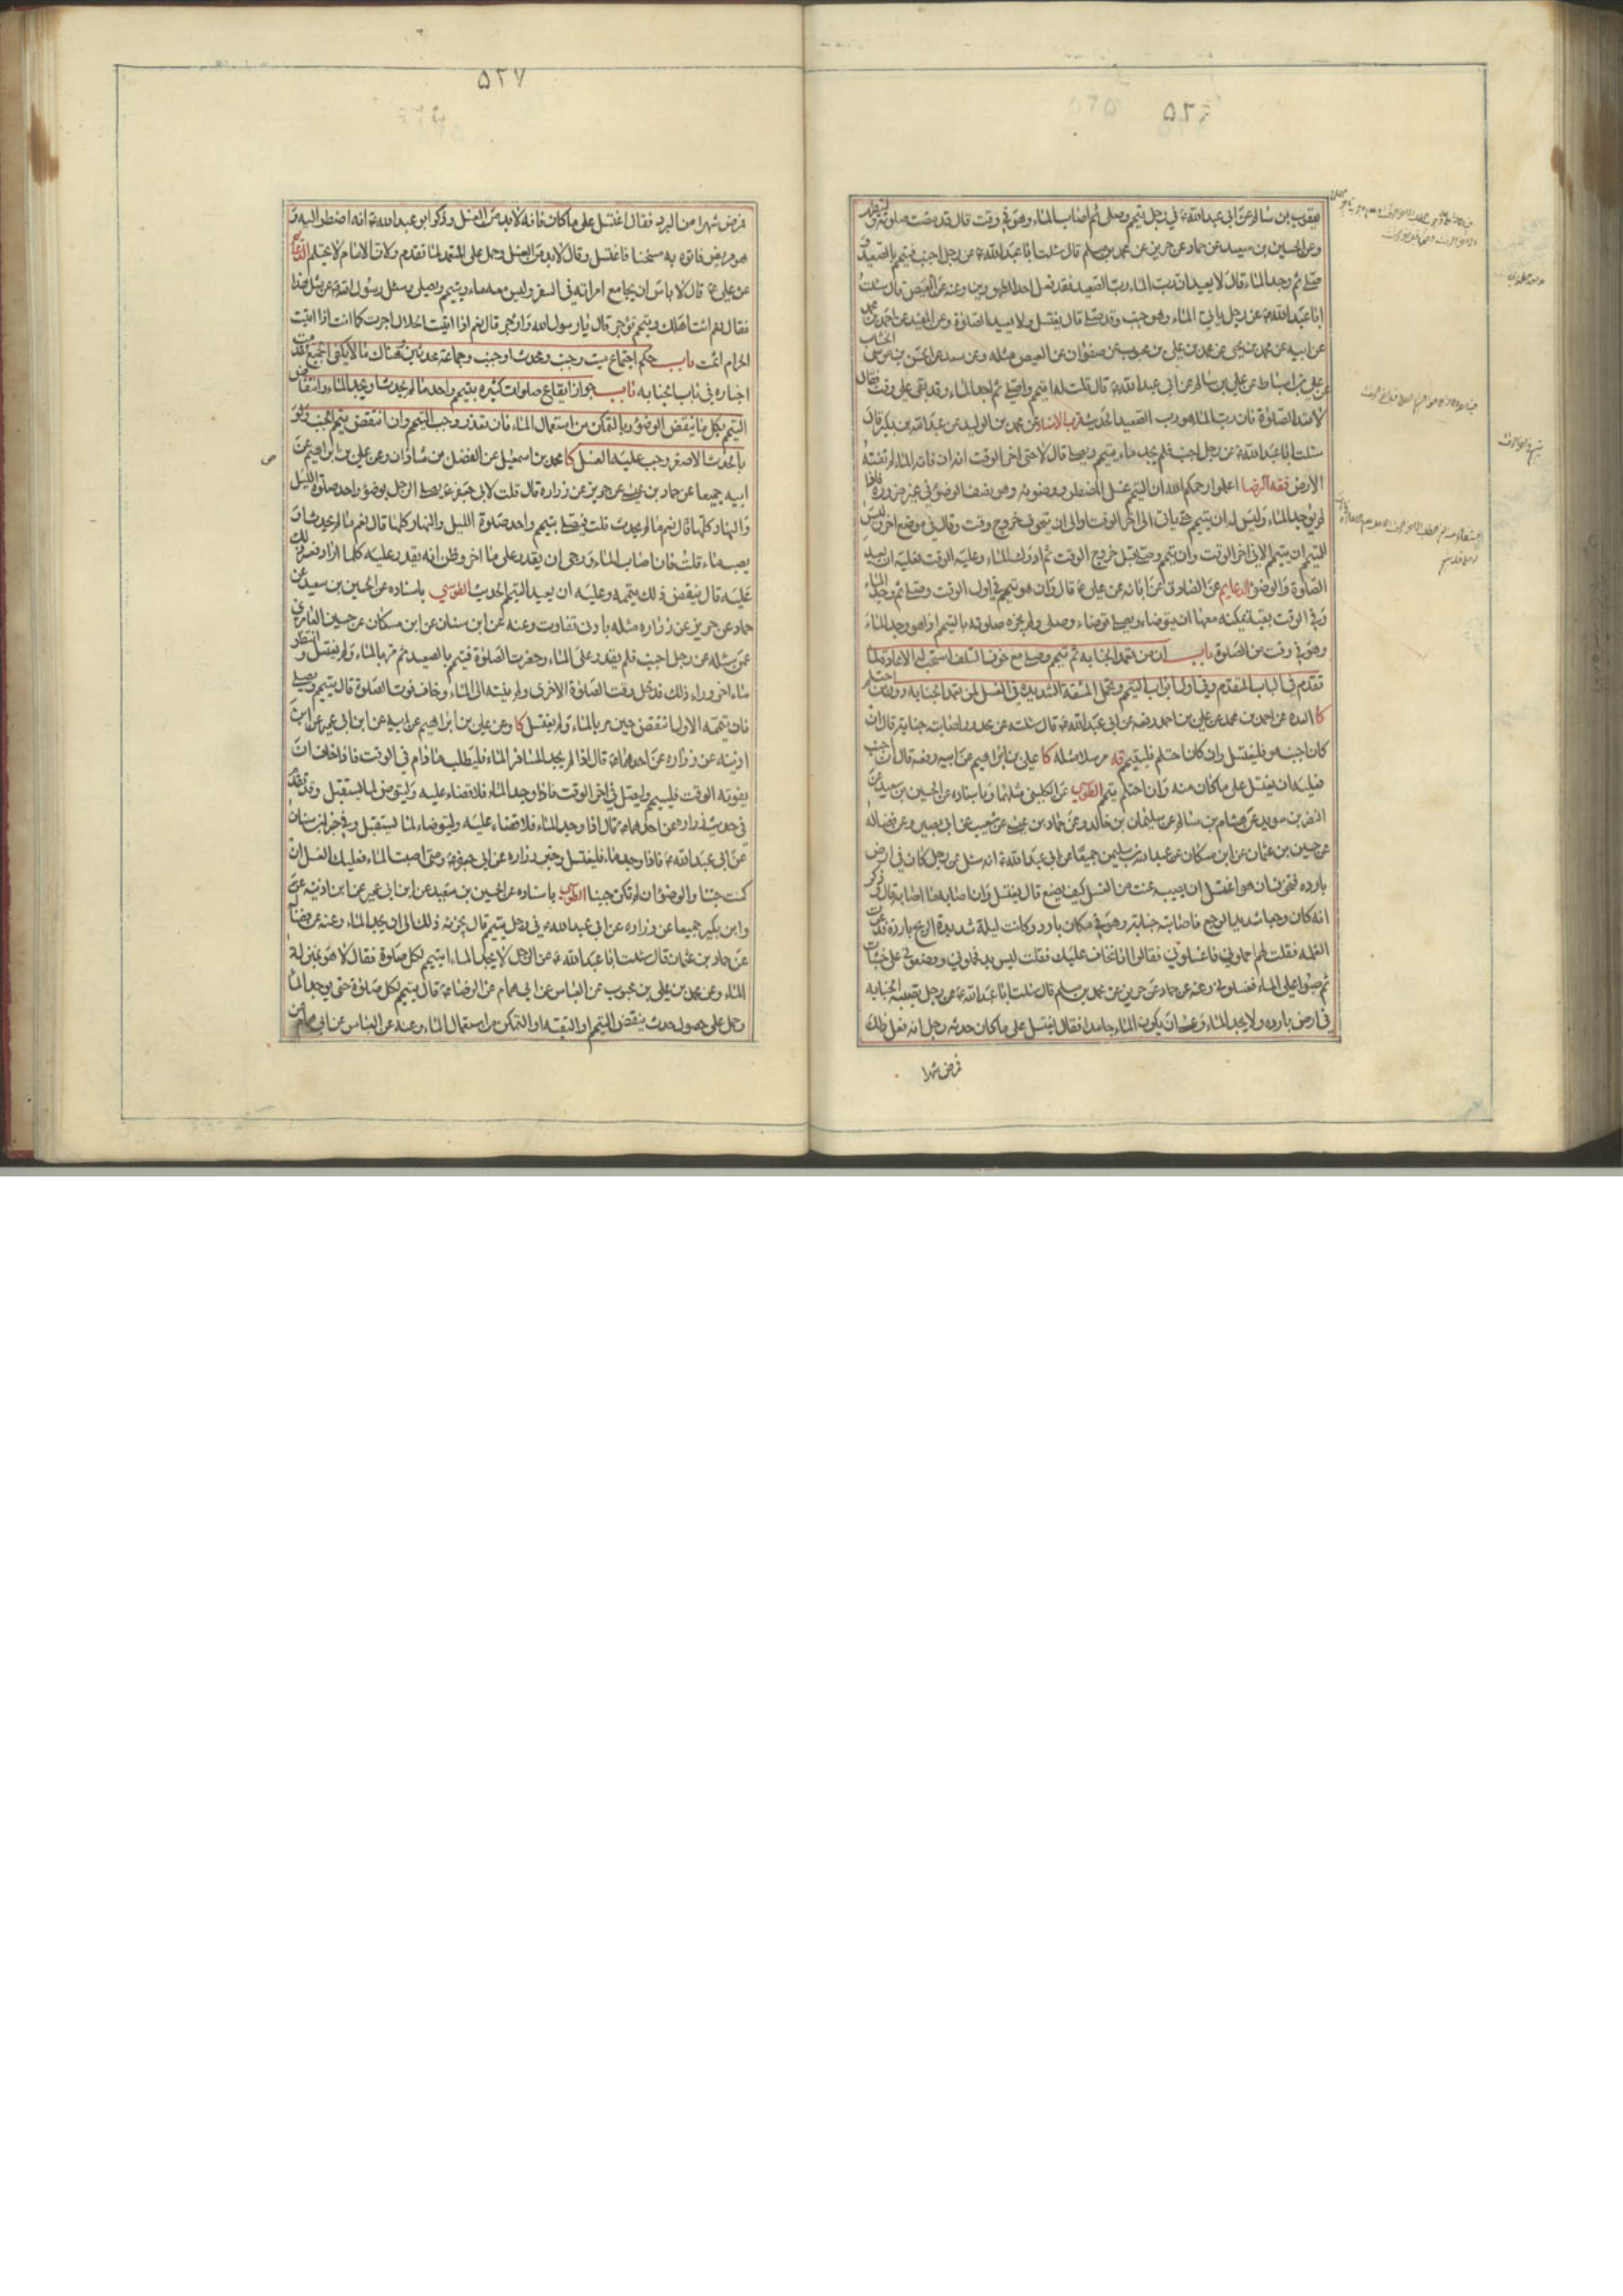 ٥٢٦
يعقوب بن سالم عن ابى عبدالله ع في رجل تيمم وصلى ثم اصاب الماء وهو في وقت قال قد مضت صلوته وليتطهر
وعن الحسين بن سعيد عن حماد عن حريز عن محمد بن مسلم قال سئلت ابا عبدالله ع عن رجل اجنب فتيمم بالصعيد و
صلى ثم وجد الماء قال لا يعيد ان رب الماء رب الصعيد فقد فعل احد الطهورين وعنه عن العيص قال سئلت
ابا عبدالله ع عن رجل ياتي الماء وهو جنب وقد صلى قال يغتسل ولا يعيد الصلوة وعن المفيد عن احمد بن محمد
عن ابيه عن محمد بن يحيى عن محمد بن علي بن محبوب عن صفوان عن العيص مثله وعن سعد عن الحسن بن موسى الخشاب
عن علي بن اسباط عن علي بن سالم عن ابى عبدالله ع قال قلت له اتيمم واصلى ثم اجد الماء وقد بقى على وقت فقال
لا تعد الصلوة فان رب الماء هو رب الصعيد الحديث قرب الاسناد عن محمد بن الوليد عن عبدالله بن بكير قال
سئلت ابا عبدالله ع عن رجل اجنب فلم يجد ماء يتيمم ويصلى قال لا حتى اخر الوقت انه ان فاته الماء لم تفته
الارض فقه الرضا اعلموا رحمكم الله ان التيمم غسل المضطر ووضوئه وهو نصف الوضوء في غير ضرورة فاذا
لم يوجد الماء وليس له ان يتيمم حتى ياتى الى اخر الوقت او الى ان يتخوف خروج وقت وقال في موضع اخر وليس
للمتيمم ان يتيمم الا في اخر الوقت وان تيمم وصلى قبل خروج الوقت ثم ادرك الماء وعليه الوقت فعليه ان يعيد
الصلوة والوضوء الدعايم عن الصادق عن ابائه عن علي ع قال وان هو تيمم في اول الوقت وصلى ثم وجد الماء
وفي الوقت بقية يمكنه معها ان يتوضاء ويصلى توضاء وصلى ولم يجزه صلوته بالتيمم اذا هو وجد الماء
وهو في وقت من الصلوة باب ان من تعمد الجنابه ثم تيمم وصلى مع خوف التلف استحب له الاعادة لما
تقدم في الباب المتقدم وفي اول ابواب التيمم وتحمل المشقة الشديدة في الغسل لمن تعمد الجنابه دون من احتلم
كا العدة عن احمد بن محمد عن علي بن احمد رفعه عن ابى عبدالله ع قال سئلته عن مجدور اصابته جنابة قال ان
كان اجنب هو فليغتسل وان كان احتلم فليتيمم قه مرسلا مثله كا علي بن ابراهيم عن ابيه رفعه قال ان اجنب
فعليه ان يغتسل على ما كان منه وان احتلم يتيمم الطوسي عن الكليني مثلهما وباسناده عن الحسين بن سعيد عن
النضر بن سويد عن هشام بن سالم عن سليمان بن خالد وعن حماد بن عيسى عن شعيب عن ابى بصير وعن فضاله
عن حسين بن عثمان عن ابن مسكان عن عبدالله بن سليمن جميعا عن ابى عبدالله ع انه سئل عن رجل كان في ارض
بارده فتخوف ان هو اغتسل ان يصيبه عنت من الغسل كيف يصنع قال يغتسل وان اصابه ما اصابه قال وذكر
انه كان وجعا شديد الوجع فاصابته جنابة وهو في مكان بارد وكانت ليلة شديدة الريح بارده فدعوت
الغلمه فقلت لهم احملوني فاغسلوني فقالوا انا نخاف عليك فقلت ليس بد فحملوني ووضعوني على خشبات
ثم صبوا على الماء فغسلوني وعنه عن حماد عن حريز عن محمد بن مسلم قال سئلت ابا عبدالله ع عن رجل تصيبه الجنابه
في ارض بارده ولا يجد الماء وعسى ان يكون الماء جامدا فقال يغتسل على ما كان حدثه رجل انه فعل ذلك
فمرض شهرا
٥٢٧
فمرض شهرا من البرد فقال اغتسل على ما كان فانه لابد من الغسل وذكر ابو عبدالله ع انه اضطر اليه و
هو مريض فاتوه به مسخنا فاغتسل وقال لابد من الغسل وحمل على المتعمد لما تقدم ولان الامام لا يحتلم الدعايم
عن علي ع قال لا باس ان يجامع امراته في السفر وليس معه ماء ويتيمم ويصلى وسئل رسول الله ص عن مثل هذا
فقال نعم ائت اهلك وتيمم وتوجر قال يا رسول الله واوجر قال نعم اذا اتيت الحلال اجرت كما انت اذا اتيت
الحرام اثمت باب حكم اجتماع ميت وجنب ومحدث او جنب وجماعة محدثين وهناك ما لا يكفى الجميع تقدمت
اخباره في باب الجنابه باب جواز ايقاع صلوات كثيره بتيمم واحد ما لم يحدث او يجد الماء وانتقاض
التيمم بكل ما ينقض الوضوء وبالتمكن من استعمال الماء فان تعذر وجب التيمم وان انتقض تيمم الجنب ولو
بالحدث الاصغر وجب عليه الغسل كا محمد بن اسمعيل عن الفضل بن شاذان وعن علي بن ابراهيم عن
ابيه جميعا عن حماد بن عيسى عن حريز عن زراره قال قلت لابى جعفر ع يصلى الرجل بوضوء واحد صلوة الليل
والنهار كلها قال نعم ما لم يحدث قلت فيصلى بتيمم واحد صلوة الليل والنهار كلها قال نعم ما لم يحدث او
يصب ماء قلت فان اصاب الماء ورجى ان يقدر على ماء اخر وظن انه يقدر عليه كلما اراد فعسر ذلك
عليه قال ينقض ذلك تيممه وعليه ان يعيد التيمم الحديث الطوسي باسناده عن الحسين بن سعيد عن
حماد عن حريز عن زراره مثله بادنى تفاوت وعنه عن ابن سنان عن ابن مسكان عن حسين العامري
عمن سئله عن رجل اجنب فلم يقدر على الماء وحضرت الصلوة فتيمم بالصعيد ثم مر بالماء ولم يغتسل وانتظر
ماء اخر وراء ذلك فدخل وقت الصلوة الاخرى ولم ينته الى الماء وخاف فوت الصلوة قال يتيمم ويصلى
فان تيممه الاول انتقض حين مر بالماء ولم يغتسل كا وعن علي بن ابراهيم عن ابيه عن ابن ابى عمير عن ابن
اذينه عن زراره عن احدهما ع قال اذا لم يجد المسافر الماء فليطلب ما دام في الوقت فاذا خاف ان
يفوته الوقت فليتيمم وليصل في اخر الوقت فاذا وجد الماء فلا قضاء عليه وليتوض لما يستقبل وقد تقدم
في حديث زراره عن احدهما ع قال اذا وجد الماء فلا قضاء عليه وليتوضاء لما يستقبل وفي خبر ابن سنان
عن ابى عبدالله ع فاذا وجد ماء فليغتسل وخبر زراره عن ابى جعفر ع ومتى اصبت الماء فعليك الغسل ان
كنت جنبا والوضوء ان لم تكن جنبا الطوسي باسناده عن الحسين بن سعيد عن ابن ابى عمير عن ابن اذينه عن
وابن بكير جميعا عن زراره عن ابى عبدالله ع في رجل تيمم قال يجزئه ذلك الى ان يجد الماء وعنه عن فضاله
عن حماد بن عثمان قال سئلت ابا عبدالله ع عن الرجل لا يجد الماء ايتيمم لكل صلوة فقال لا هو بمنزلة
الماء وعن محمد بن علي بن محبوب عن العباس عن ابى همام عن الرضا ع قال يتيمم لكل صلوة حتى يوجد الماء
وحمل على حصول حدث ينقض التيمم او التقيه او التمكن من استعمال الماء وعنه عن العباس عن ابى همام عن